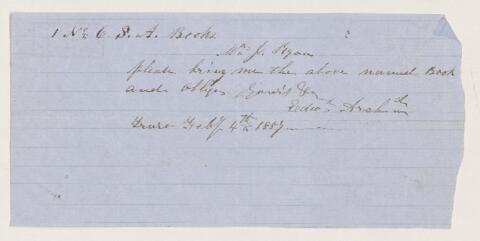 1 No 6 S. A. Books
Mr J. Ryan
please bring me the above named Book
and oblige Yours &c
Edwd Arch
Truro Feby 4th 1857